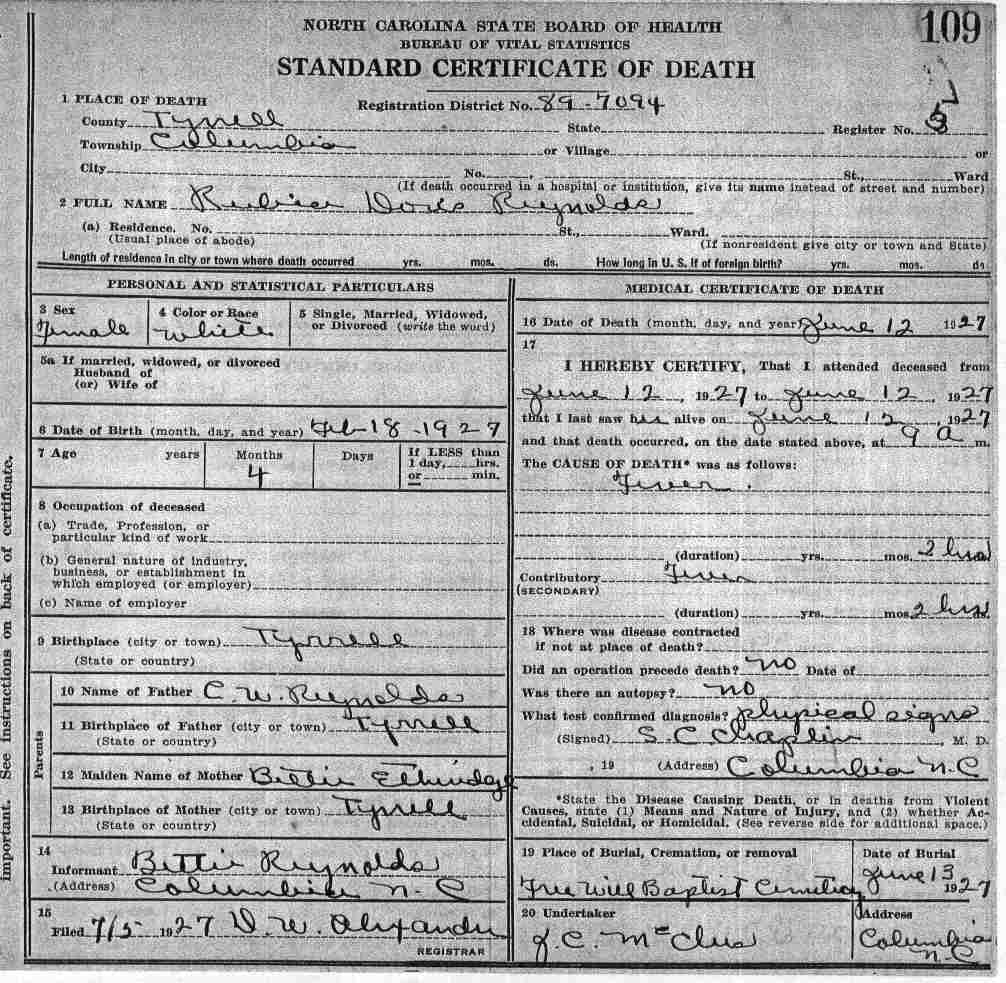 109
NORTH CAROLINA STATE BOARD OF HEALTH
BUREAU OF VITAL STATISTICS
STANDARD CERTIFICATE OF DEATH
1 PLACE OF DEATH
Registration District No. 89-7094
County Tyrrell State Register No. 5
Township Columbia or Village or
City No. St., Ward
(If death occurred in a hospital or institution, give its name instead of street and number)
2 FULL NAME Doris Reynolds
(a) Residence. No. St., Ward.
(Usual place of abode) (If nonresident give city or town and State)
Length of residence in city or town where death occurred yrs. mos. ds. How long in U. S. if of foreign birth? yrs. mos. ds.
PERSONAL AND STATISTICAL PARTICULARS
3 Sex
Female
4 Color or Race
White
5 Single, Married, Widowed,
or Divorced (write the word)
5a If married, widowed, or divorced
Husband of
(or) Wife of
6 Date of Birth (month, day, and year) Feb-18-1927
7 Age years Months Days If LESS than
4 1 day, hrs.
or min.
8 Occupation of deceased
(a) Trade, Profession, or
particular kind of work
(b) General nature of industry,
business, or establishment in
which employed (or employer)
(c) Name of employer
9 Birthplace (city or town) Tyrrell
(State or country)
Parents
10 Name of Father C. W. Reynolds
11 Birthplace of Father (city or town) Tyrrell
(State or country)
12 Maiden Name of Mother Bettie Etheridge
13 Birthplace of Mother (city or town) Tyrrell
(State or country)
14
Informant Bettie Reynolds
(Address) Columbia N. C
15
Filed 7/5 1927 D. W. Alexander
REGISTRAR
MEDICAL CERTIFICATE OF DEATH
16 Date of Death (month, day, and year) June 12 1927
17
I HEREBY CERTIFY, That I attended deceased from
June 12, 1927 to June 12, 1927
that I last saw h alive on June 12, 1927
and that death occurred, on the date stated above, at 9 a m.
The CAUSE OF DEATH* was as follows:
Fever.
(duration) yrs. mos. 2 hrs ds.
Contributory Fever
(SECONDARY)
(duration) yrs. mos. 2 hrs ds.
18 Where was disease contracted
if not at place of death?
Did an operation precede death? no Date of
Was there an autopsy? no
What test confirmed diagnosis? physical signs
(Signed) S. C. Chaplin, M. D.
, 19 (Address) Columbia N. C
*State the Disease Causing Death, or in deaths from Violent
Causes, state (1) Means and Nature of Injury, and (2) whether Ac-
cidental, Suicidal, or Homicidal. (See reverse side for additional space.)
19 Place of Burial, Cremation, or removal
Free Will Baptist Cemetery
Date of Burial
June 13
1927
20 Undertaker
J. C. McClees
Address
Columbia
N. C
Important. See instructions on back of certificate.